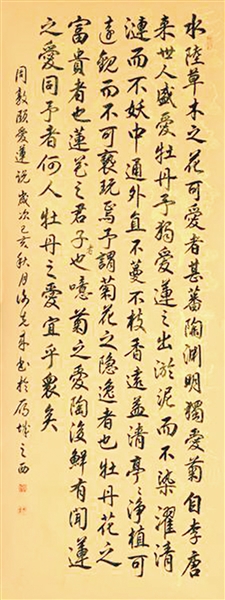 水陸草木之花可愛者甚蕃陶渊明獨愛菊自李唐
来世人盛愛牡丹予獨愛蓮之出淤泥而不染濯清
漣而不妖中通外直不蔓不枝香遠益清亭々淨植可
遠觀而不可褻玩焉予謂菊花之隐逸者也牡丹花之
富貴者也蓮花之君子也噫菊之愛陶後鮮有聞蓮
之愛同予者何人牡丹之愛宜乎衆矣
周敦頤愛蓮説歲次己亥秋月書於雁城之西